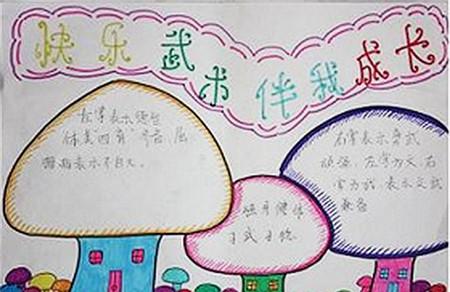 快乐武术伴我成长
左掌表示德智
体美四育齐容,屈
拇指表示不自大。
强身健体
习武习德
右拳表示勇武
顽强,左掌为文,右
拳为武,表示文武
兼备